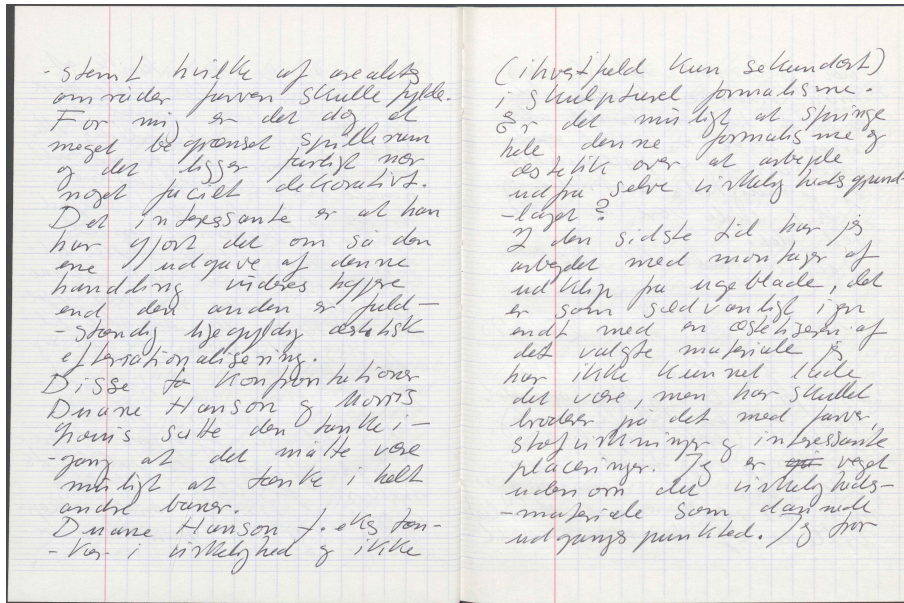 - stemt hvilke af arealets
områder farven skulle fylde.
For mig er det dog et
meget begrænset spillerum
og det ligger farligt nær
noget facilt dekorativt.
Det interessante er at han
har gjort det om så den
ene udgave af denne
handling vurderes højere
end den anden er fuld-
- stændig ligegyldig æstetisk
efterrationalisering.
Disse to konfrontationer
Duane Hanson og Morris
Louis satte den tanke i-
- gang at det måtte være
muligt at tænke i helt
andre baner.
Duane Hanson f. eks tæn-
- ker i virkelighed og ikke
(ihvertfald kun sekundært)
i skulpturel formalisme.
Er det muligt at springe
hele denne formalisme og
æstetik over at arbejde
ud fra selve virkelighedsgrund-
- laget?
I den sidste tid har jeg
arbejdet med montager af
udklip fra ugeblade, det
er som sædvanligt igen
endt med en æstetiseren af
det valgte materiale jeg
har ikke kunnet lade
det være, men har skullet
brodere på det med farver,
stofvirkninger og interessante
placeringer. Jeg er veget
uden om det virkeligheds-
- materiale som dannede
udgangspunktet. Jeg tror